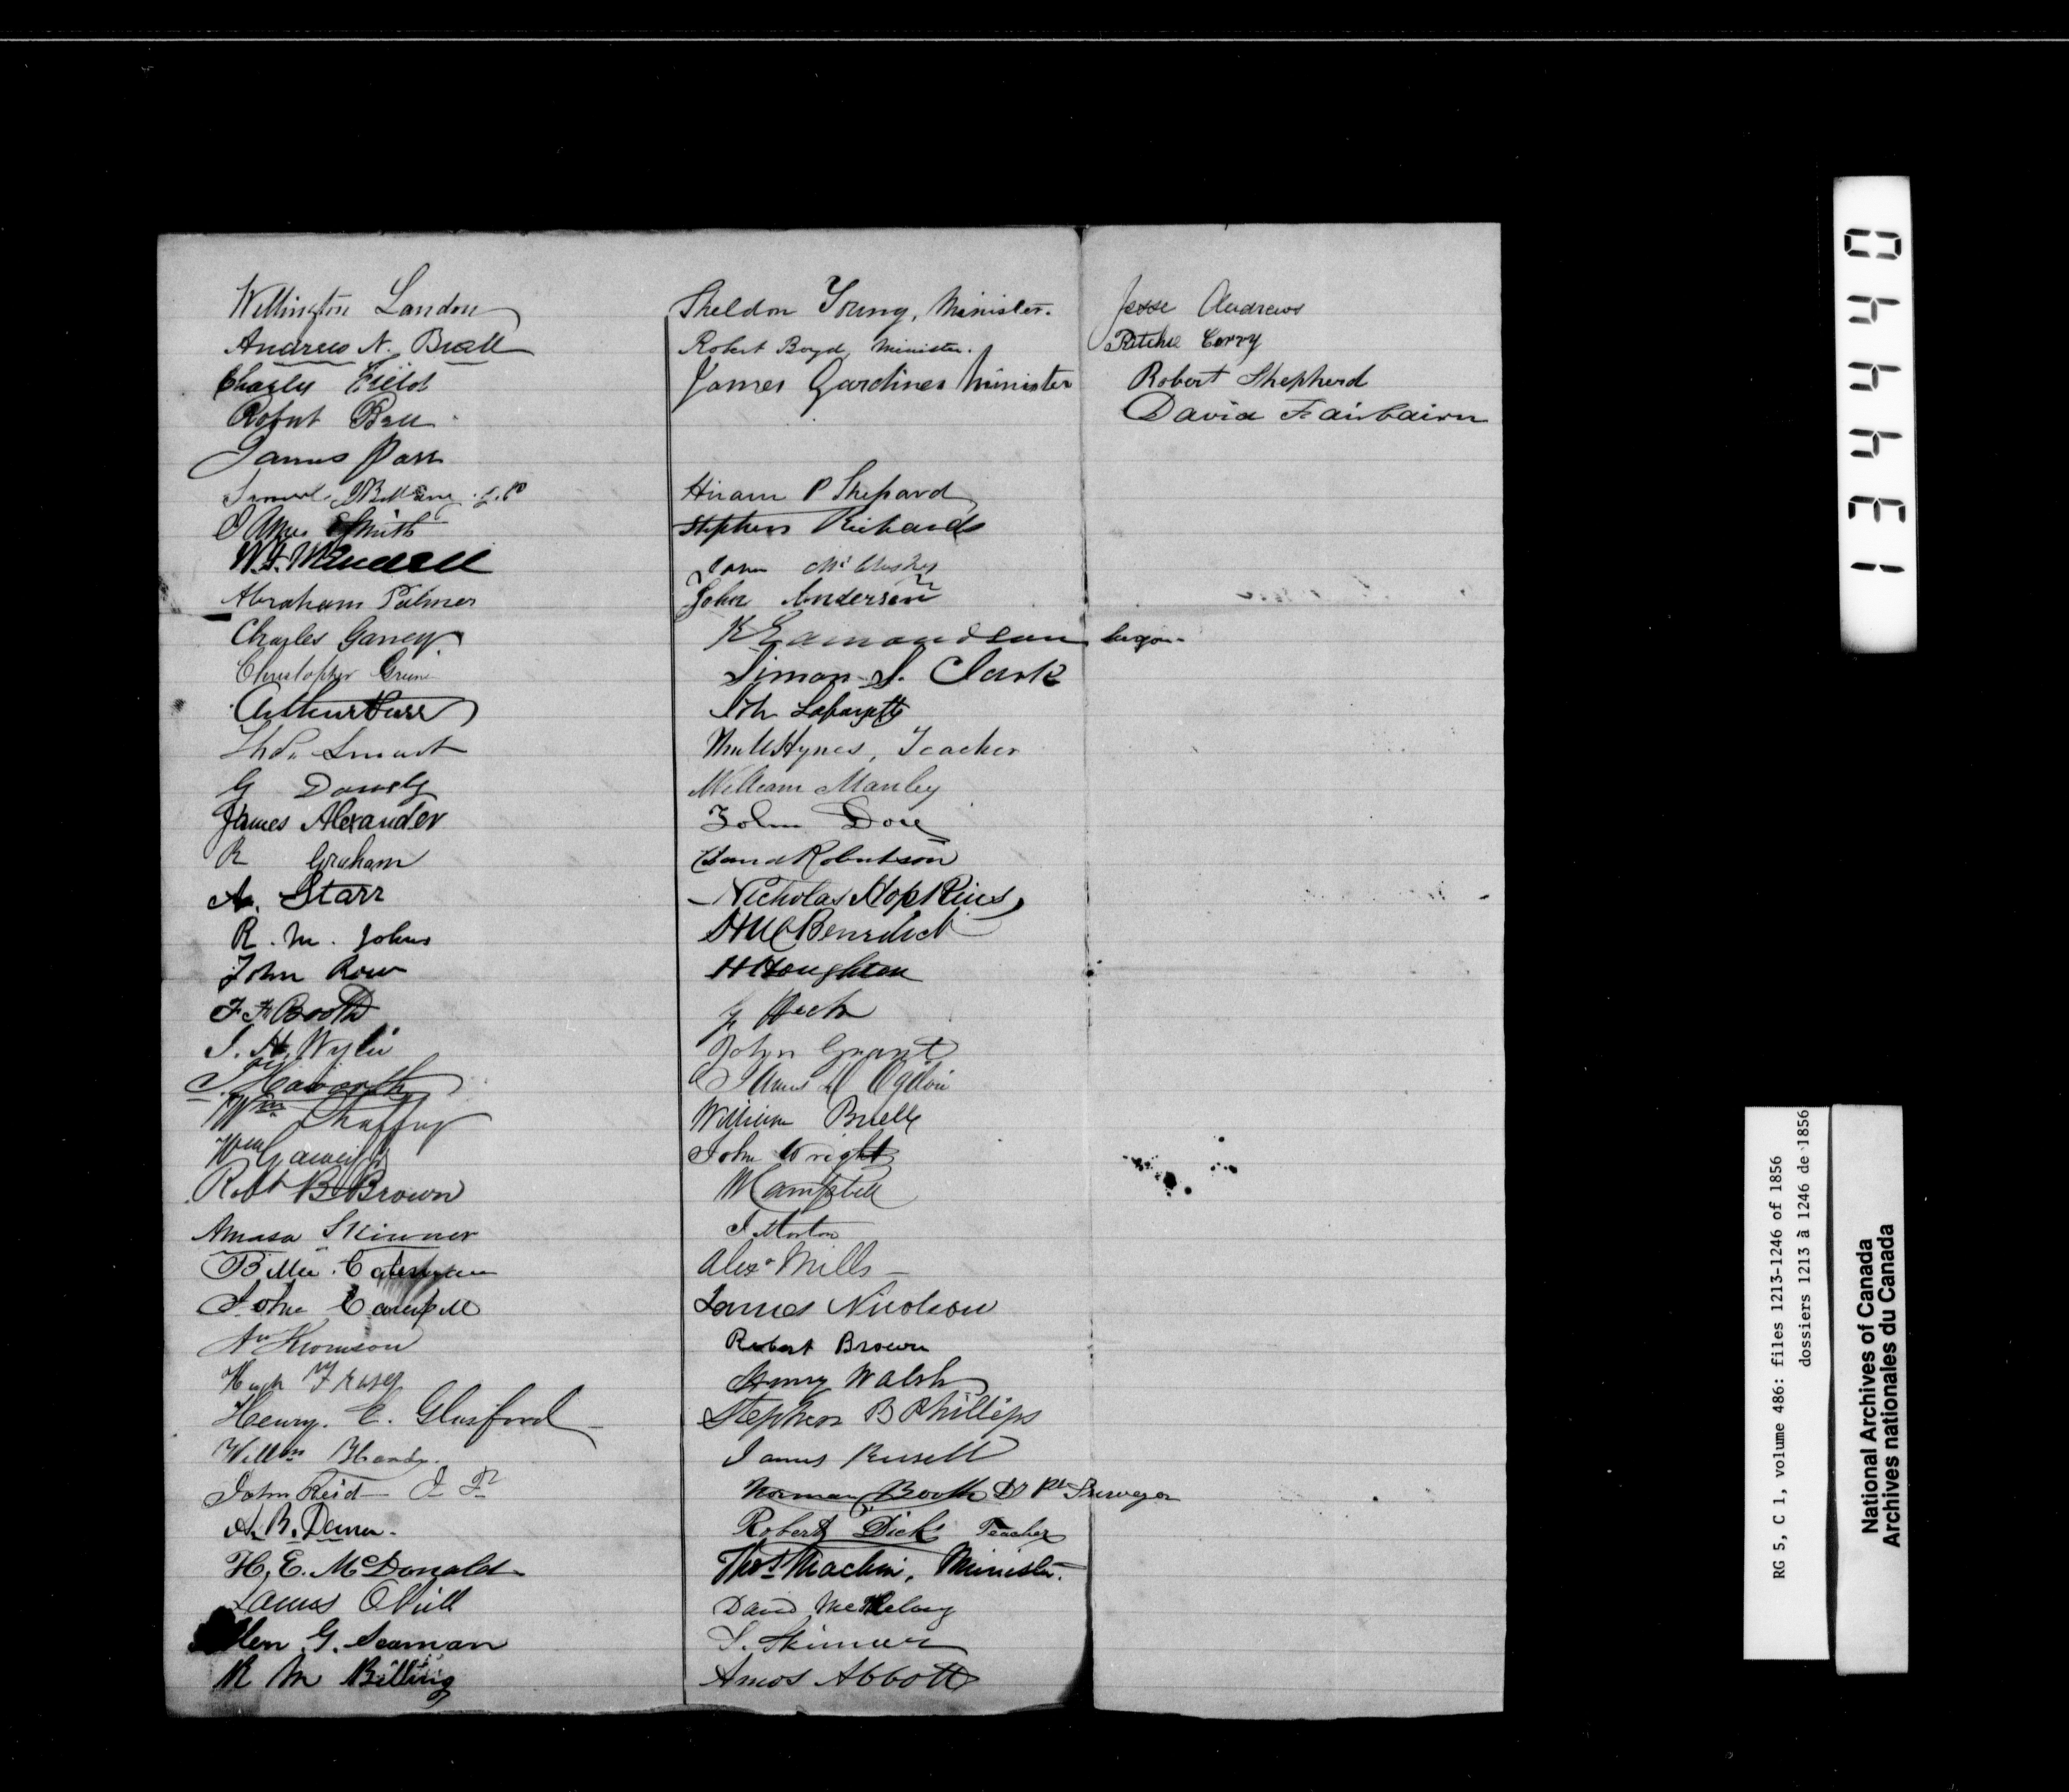 Wellington Landon
Andrew N. Buell
Charles Field
Robert Bell
James
Samuel
Smith
Abraham Palmer
Charles Garvey
Christopher Green
Arthur
Thos. Smart
G
James Alexander
R Graham
A. Starr
R. M. Johns
John Row
F F Booth
J. H. Wylie
Haworth
Wm Chaffey
Wm Garvey
Robt B Brown
Amasa Skinner
John Campbell
Thomson
Hugh Fraser
Henry. E. Glasford
Willm
John Reid
A. B. Dana
H, E. McDonald
James O'Neill
G. Seaman
R M Billing
Sheldon Young, Minister.
Robert Boyd, Minister.
James Gardiner Minister
Hiram P Shepard
Stephen Richards
John Anderson
K Edmondson Surgeon
Simon S. Clark
Joh Lafayette
Hynes, Teacher
William Manley
John Dore
Robertson
Nicholas Hopkins
Benedict
Houghton
J Heck
John Grant
James D Ogden
William Buell
John Wright
Campbell
J. Morton
Alexr Mills
James Nicolson
Robert Brown
Henry Walsh
Stephen B Phillips
James Russell
Norman Booth Surveyor
Robert Dick Teacher
Thos Machin, Minister.
David
S. Skinner
Amos Abbott
Jesse Andrews
Ritchie Corry
Robert Shepherd
David Fairbairn
134440
RG 5, C 1, volume 486: files 1213-1246 of 1856
dossiers 1213 à 1246 de 1856
National Archives of Canada
Archives nationales du Canada